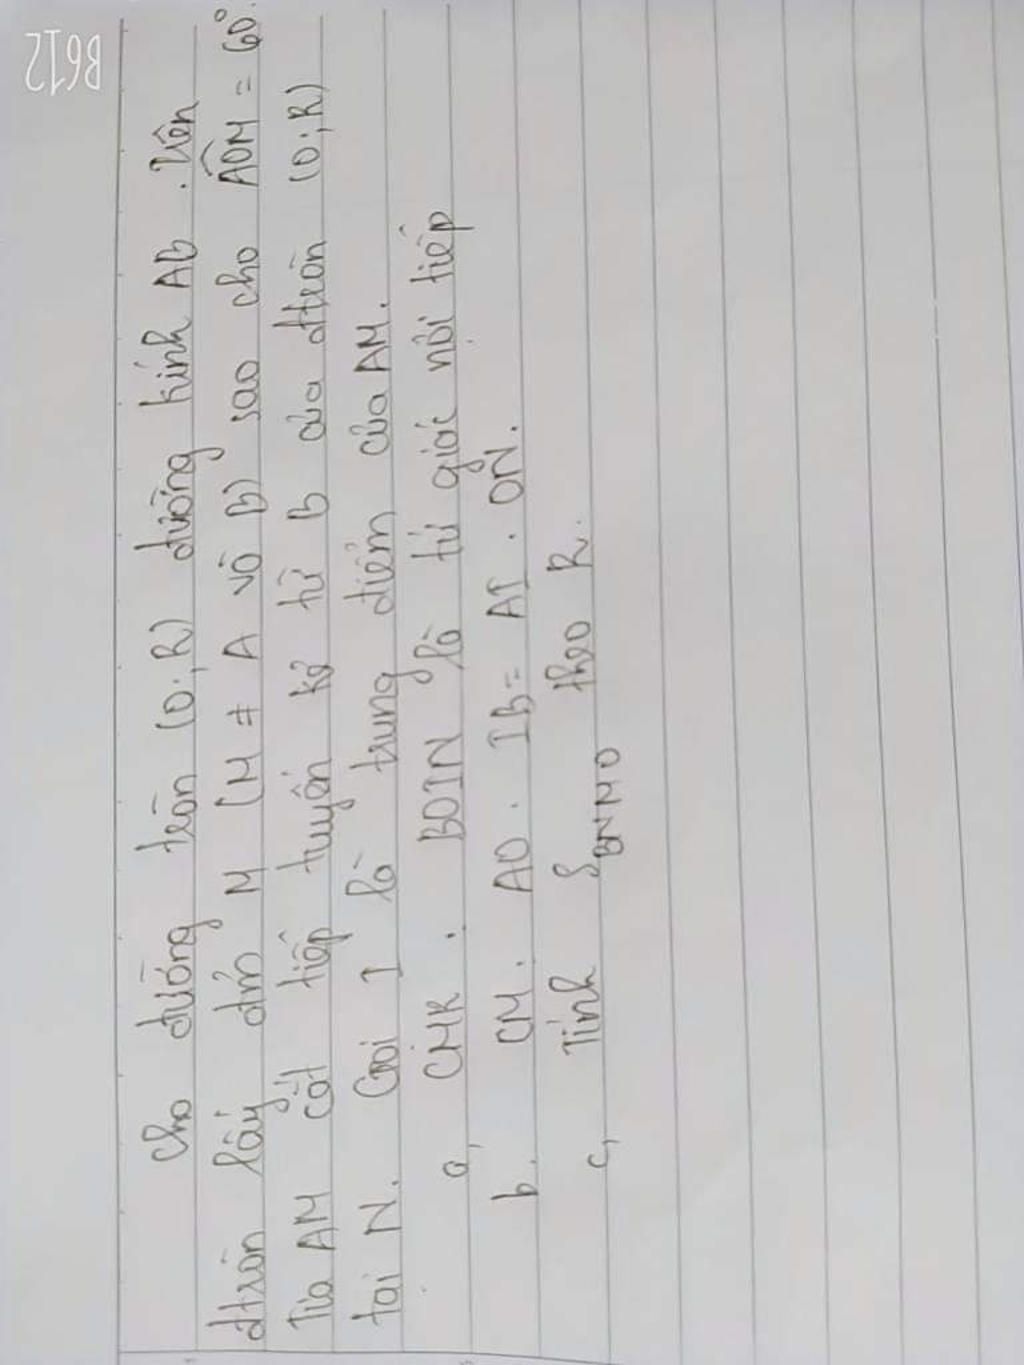 Cho đường tròn (O; R) đường kính AB. Trên
đtròn lấy đm M (M ≠ A và B) sao cho AOM = 60°.
Tia AM cắt tiếp tuyến kẻ từ B của đtròn (O; R)
tại N. Gọi I là trung điểm của AM.
a, CMR. BOIN là tứ giác nội tiếp
b. CM. AO. IB = AI. ON.
c, Tính S BNMO theo R.
B612